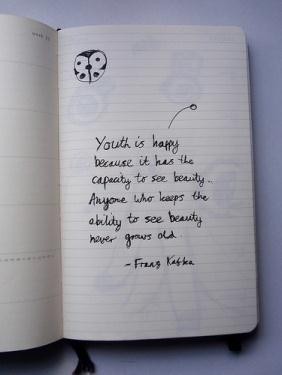 Youth is happy
because it has the
capacity to see beauty...
Anyone who keeps the
ability to see beauty
never grows old
- Franz Kafka